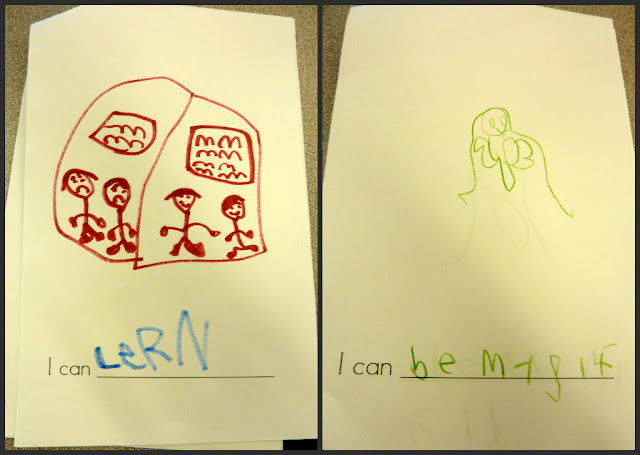 I can LeRN
I can be my